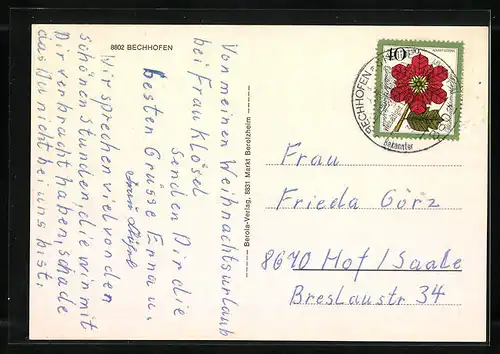 8802 BECHHOFEN
Von meinen Weihnachtsurlaub
bei Frau Klösel
Senden Dir die
besten Grüsse Erna u.
Wir sprechen viel von den
schönen Stunden, die wir mit
Dir verbracht haben, schade
das Du nicht bei uns bist.
Berola-Verlag, 8831 Markt Berolzheim
40
BECHHOFEN
Bekannter
Frau
Frieda Görz
8670 Hof/Saale
Breslaustr 34